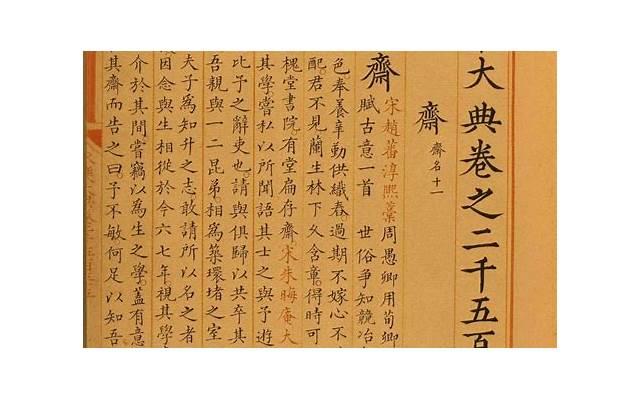 大典卷之二千五百
齋 齋名十一
齋 宋趙蕃淳熙稾周愚卿用荀卿
賦古意一首 世俗爭知競冶
色奉養辛勤供織舂。過期不嫁心不
配。君不見蘭生林下久含章。得時可
槐堂書院。有堂扁存齋。宋朱晦庵大
其學。嘗私以所聞語其士之與予遊
比予之辭吏也。請與俱歸以共卒其
吾親與一二昆弟。相爲築環堵之室
夫子爲知升之志敢請所以名之者
因念與生相從於今六七年。視其學
介於其間嘗竊以爲生之學。蓋有意
其齋而告之曰。予不敏何足以知吾